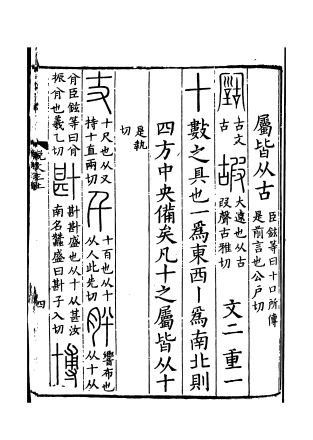 屬皆从古 臣鉉等曰十口所傳是前言也公戶切
古文古 嘏 大遠也从古叚聲古雅切 文二 重一
十 數之具也一爲東西丨爲南北則
四方中央備矣凡十之屬皆从十
是執切
丈 十尺也从又持十直兩切 千 十百也从十从人此先切 肸 響布也从十从
㑶臣鉉等曰㑶振㑶也羲乙切 斟斟盛也从十从甚汝南名蠶盛曰子入切 博
説文三上 四